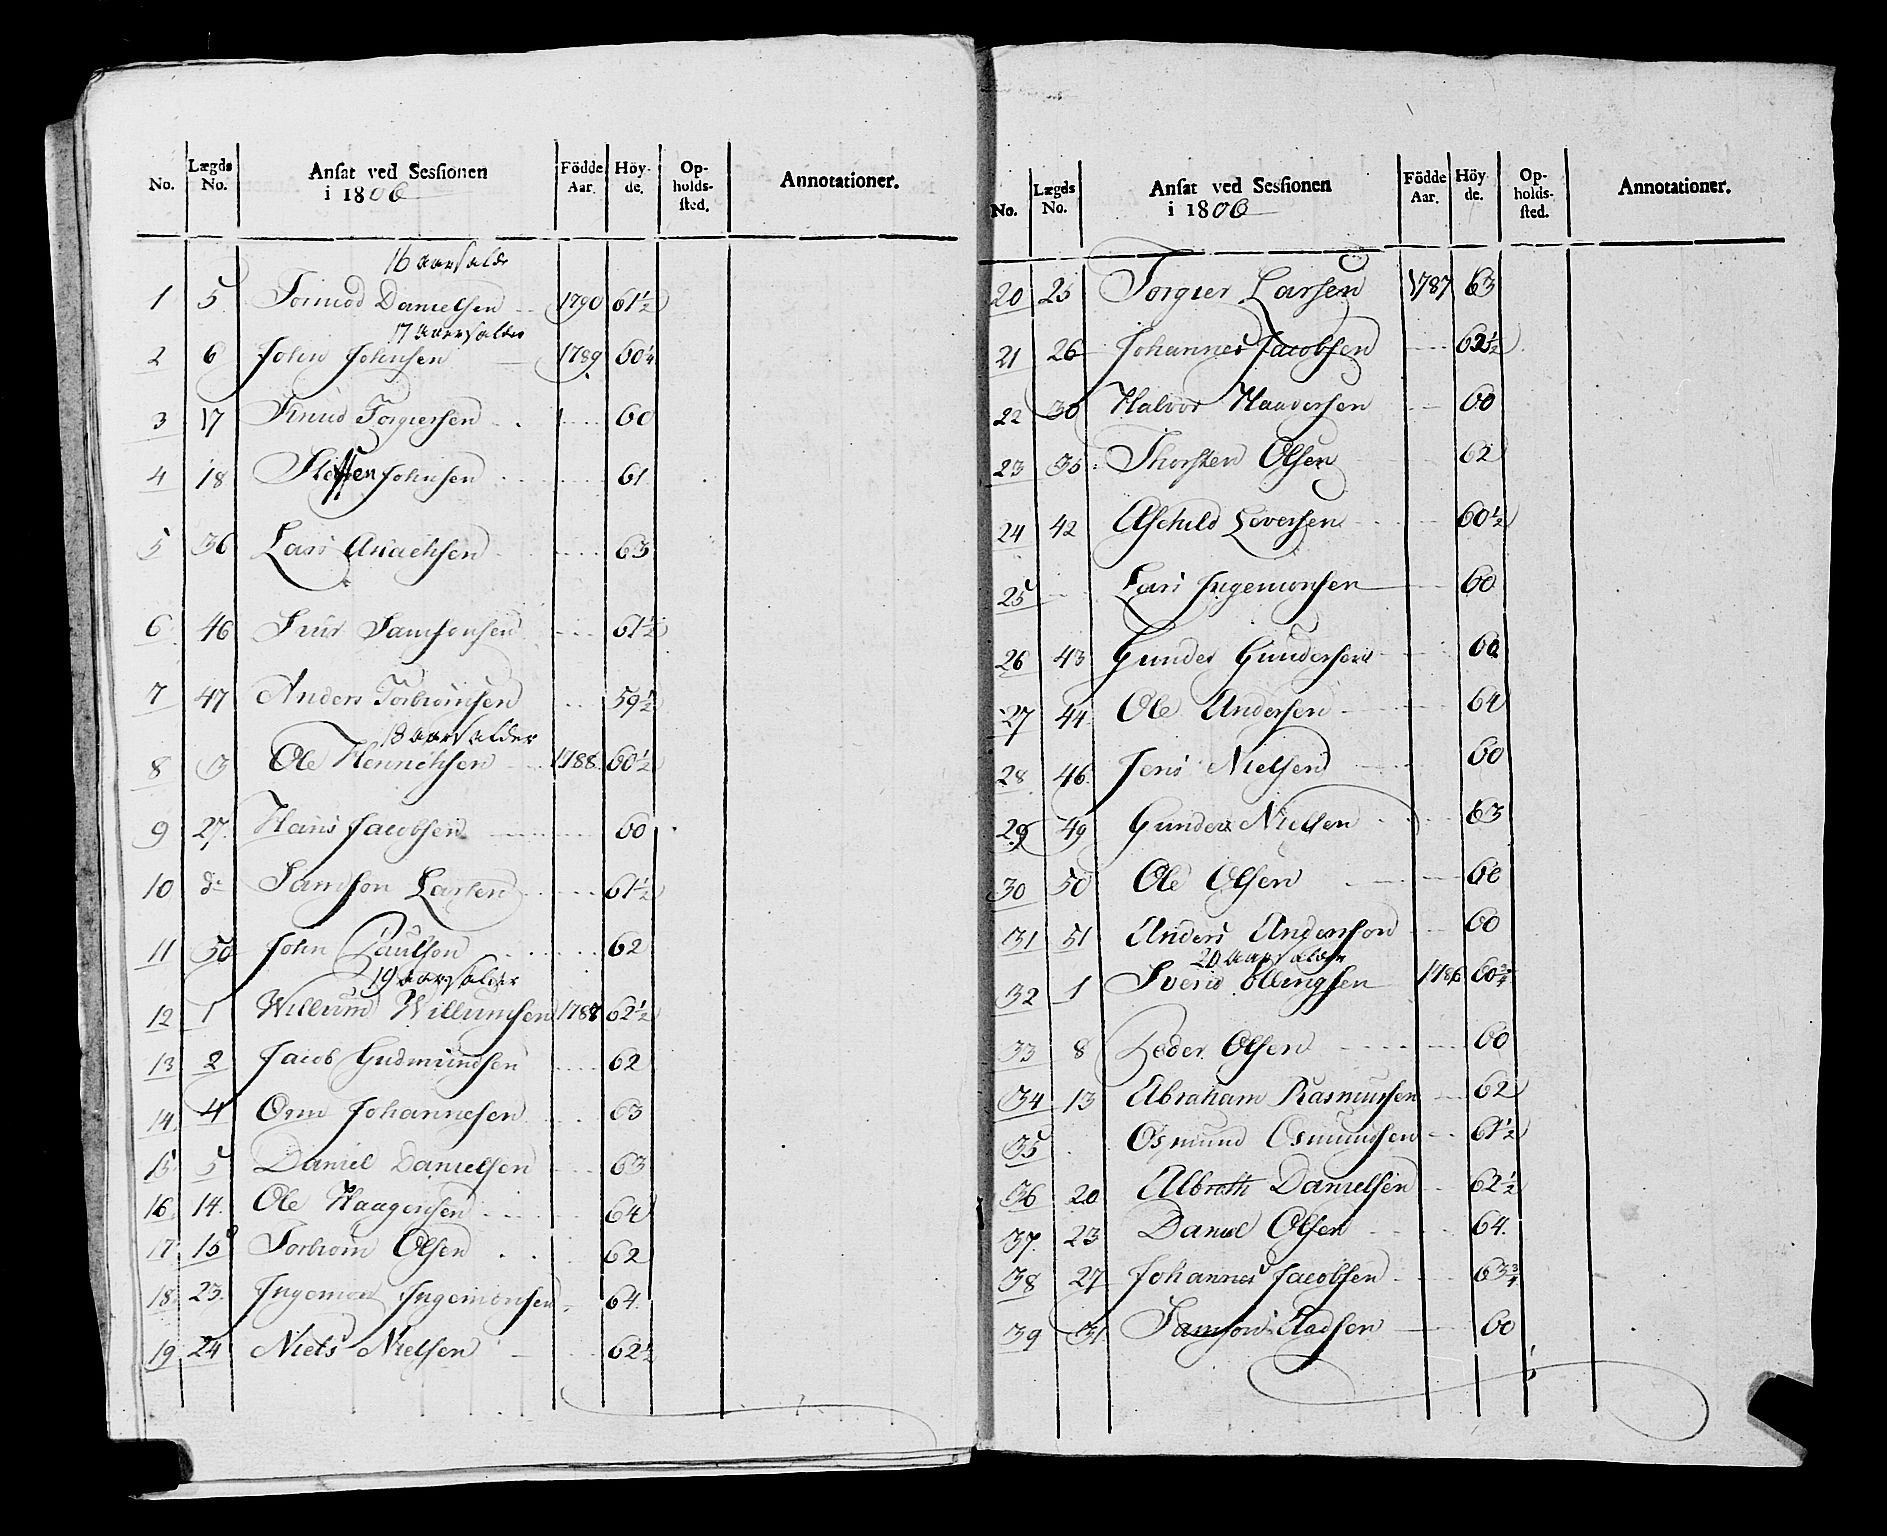 No. Lægds No. Ansat ved Sessionen i 1806 Födde Aar. Höyde. Opholdssted. Annotationer.
16 aars alder
1 5 Tormod Danielsen 1790 61½
17 aars alder
2 6 John Johnsen 1789 60¼
3 17 Knud Torgiersen 60
4 18 Johnsen 61
5 36 Lars 63
6 46 Samsonsen 61½
7 47 Anders Torbiørnsen 59½
18 aars alder
8 13 Ole Henrichsen 1788 60½
9 27 Hans Jacobsen 60
10 do Samson Larsen 61½
11 50 John Paulson 62
19 aars alder
12 1 Willum Willumsen 1787 62½
13 2 Jacob Gudmundsen 62
14 4 Orm Johannesen 63
15 5 Daniel Danielsen 63
16 14 Ole Haagensen 64
17 15 Torbiørn Olsen 62
18 23 Ingemon Ingemonsen 64
19 24 Niels Nielsen 62½
No. Lægds No. Ansat ved Sessionen i 1806 Födde Aar. Höyde. Opholdssted. Annotationer.
20 25 Torgier Larsen 1787 63
21 26 Johannes Jacobsen 62½
22 30 Halvor Haaversen 60
23 35 Thorsten Olsen 62
24 42 Siversen 60½
25 Lars Ingemonsen 60
26 43 Gunder Gundersen 60
27 44 Ole Andersen 64
28 46 Jens Nielsen 60
29 49 Gunder Nielsen 63
30 50 Ole Olsen 60
31 51 Anders Anderson 60
20 aars alder
32 1 Svend Ellingsen 1786 60¾
33 8 Peder Olsen 60
34 13 Abraham Rasmussen 62
35 Osmund Osmundsen 61½
36 20 Albreth Danielsen 62½
37 23 Daniel Olsen 64
38 27 Johannes Jacobsen 63¾
39 31 Samson Aadsen 60